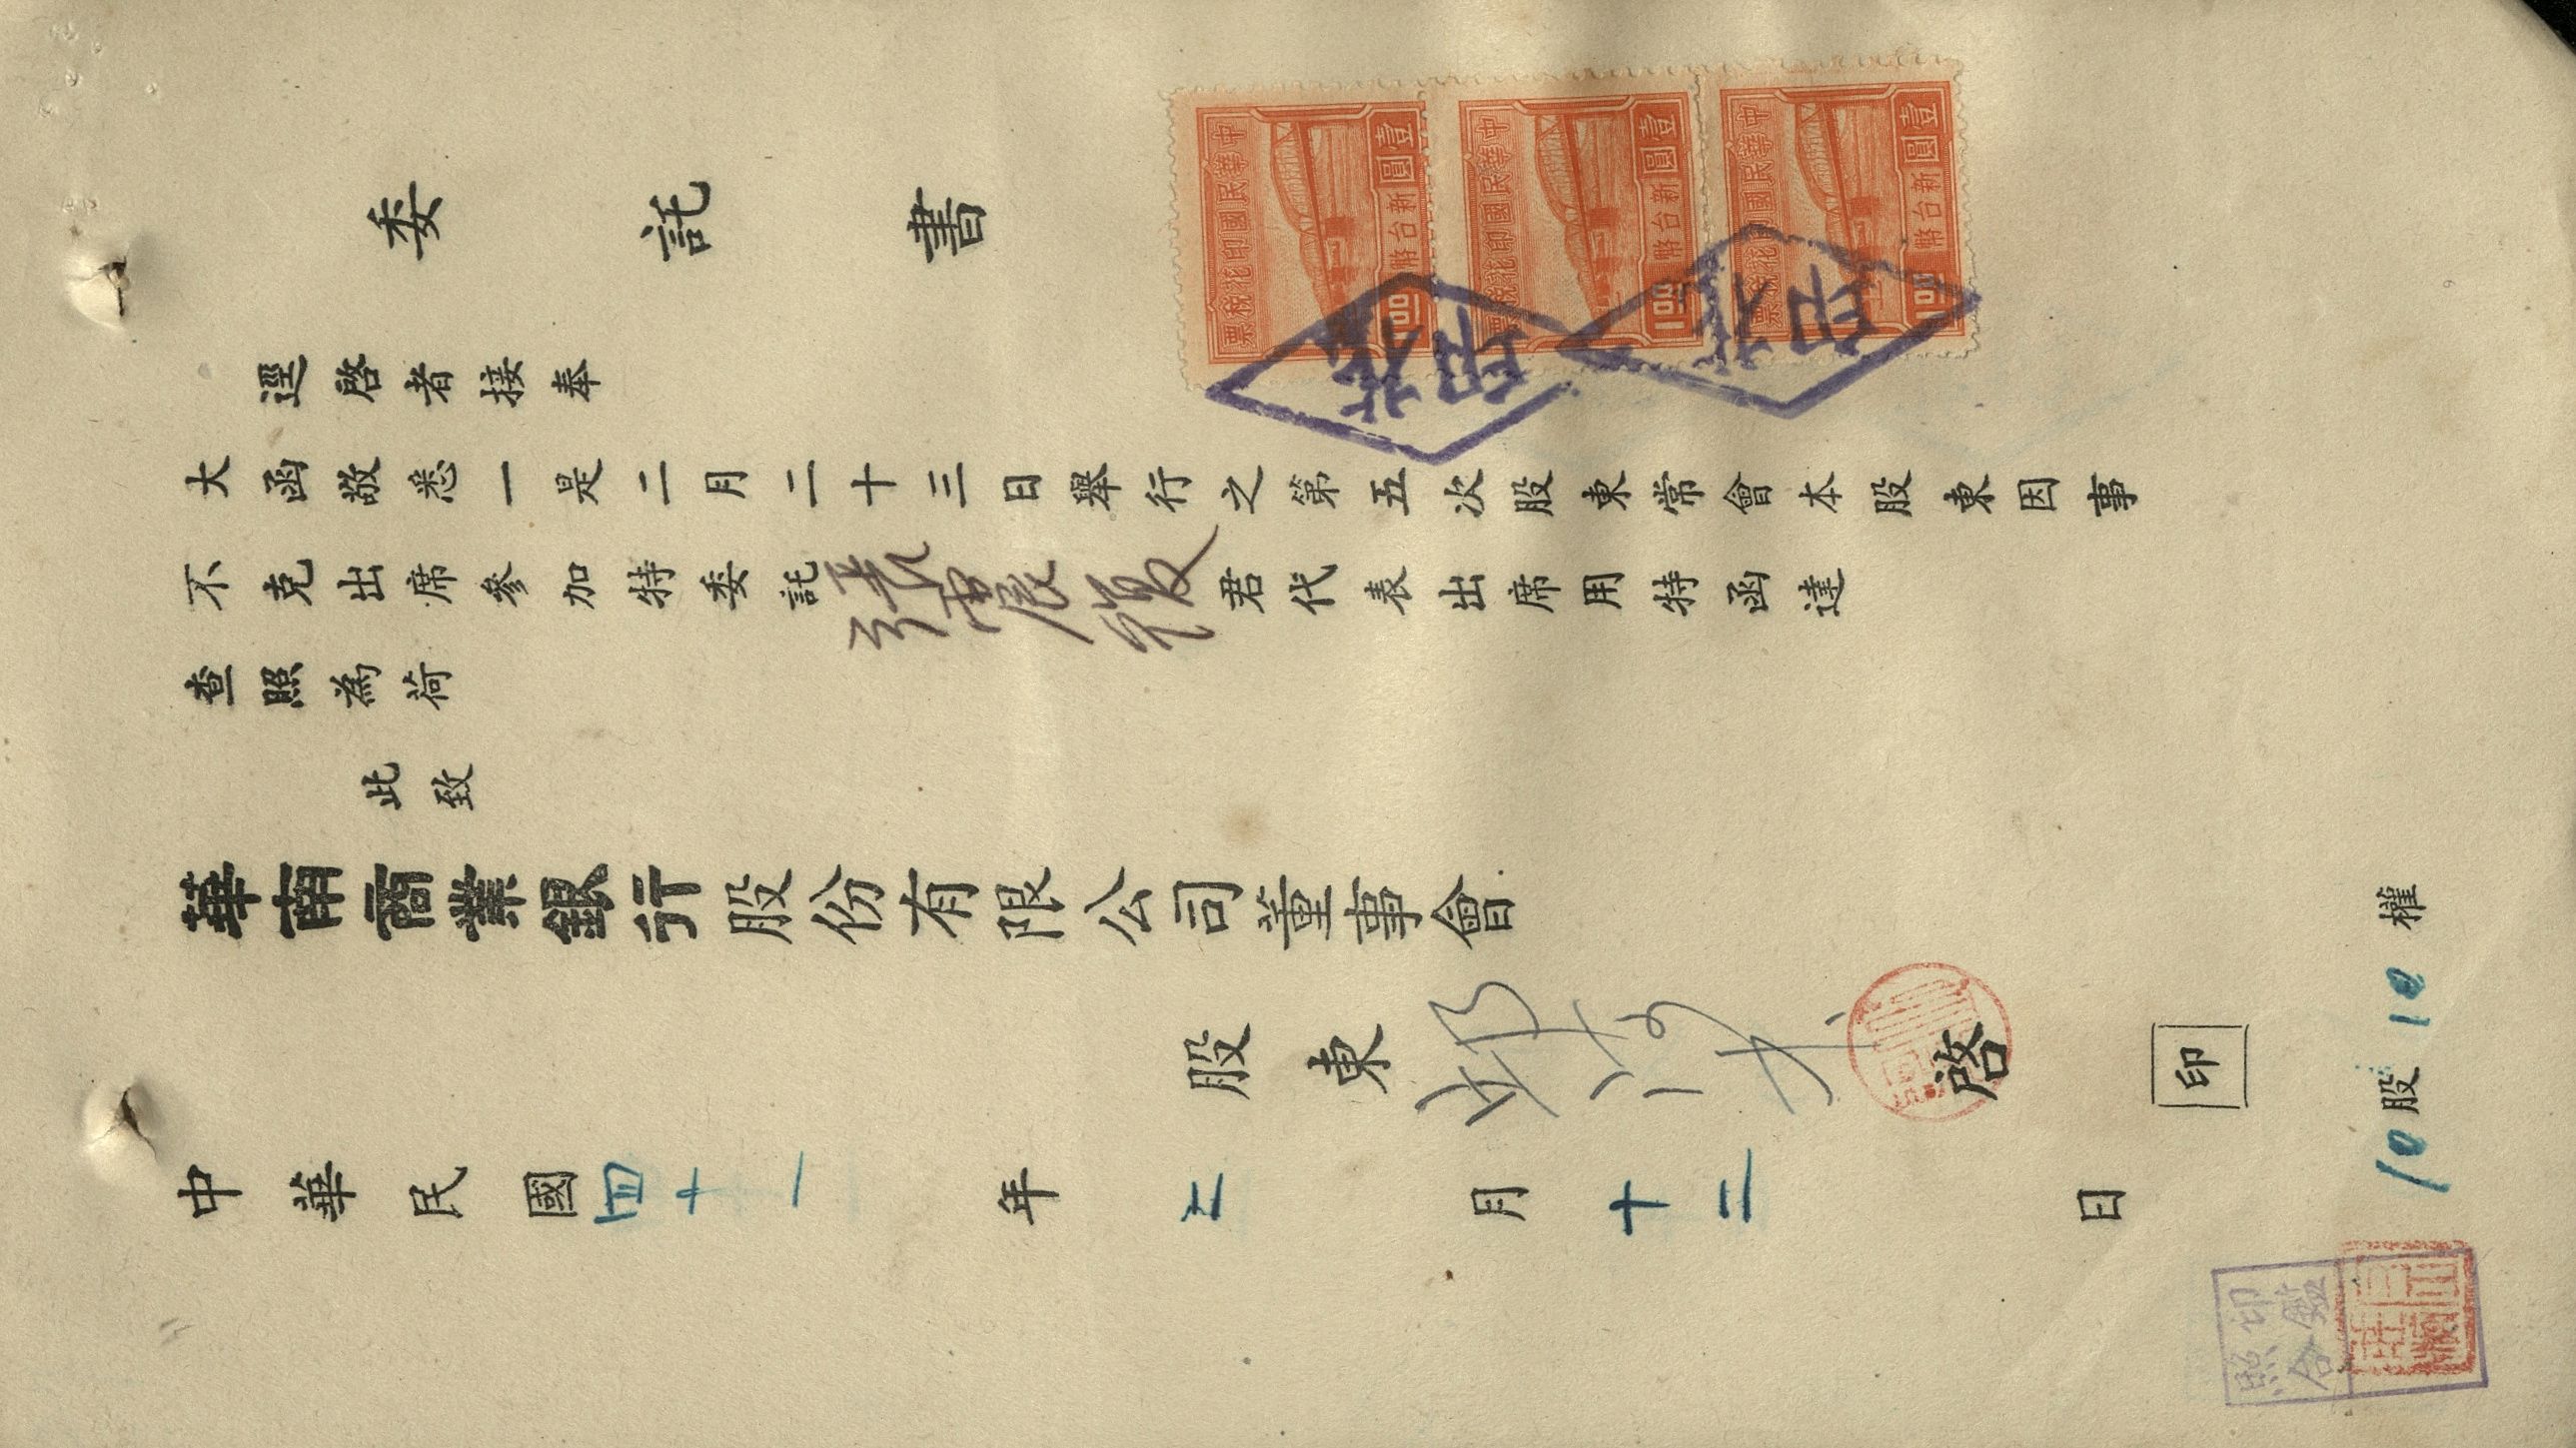 委託書
逕啓者接奉
大函敬悉一是二月二十三日舉行之第五次股東常會本股東因事
不克出席參加特委託張震複君代表出席用特函達
查照為荷
此致
華南商業銀行股份有限公司董事會
股東
啓
印
中華民國四十一年二月十二日
10股10權
中華民國印花稅票
壹圓
新台幣
1.00
中華民國印花稅票
壹圓
新台幣
1.00
中華民國印花稅票
壹圓
新台幣
1.00
印鑑
照合